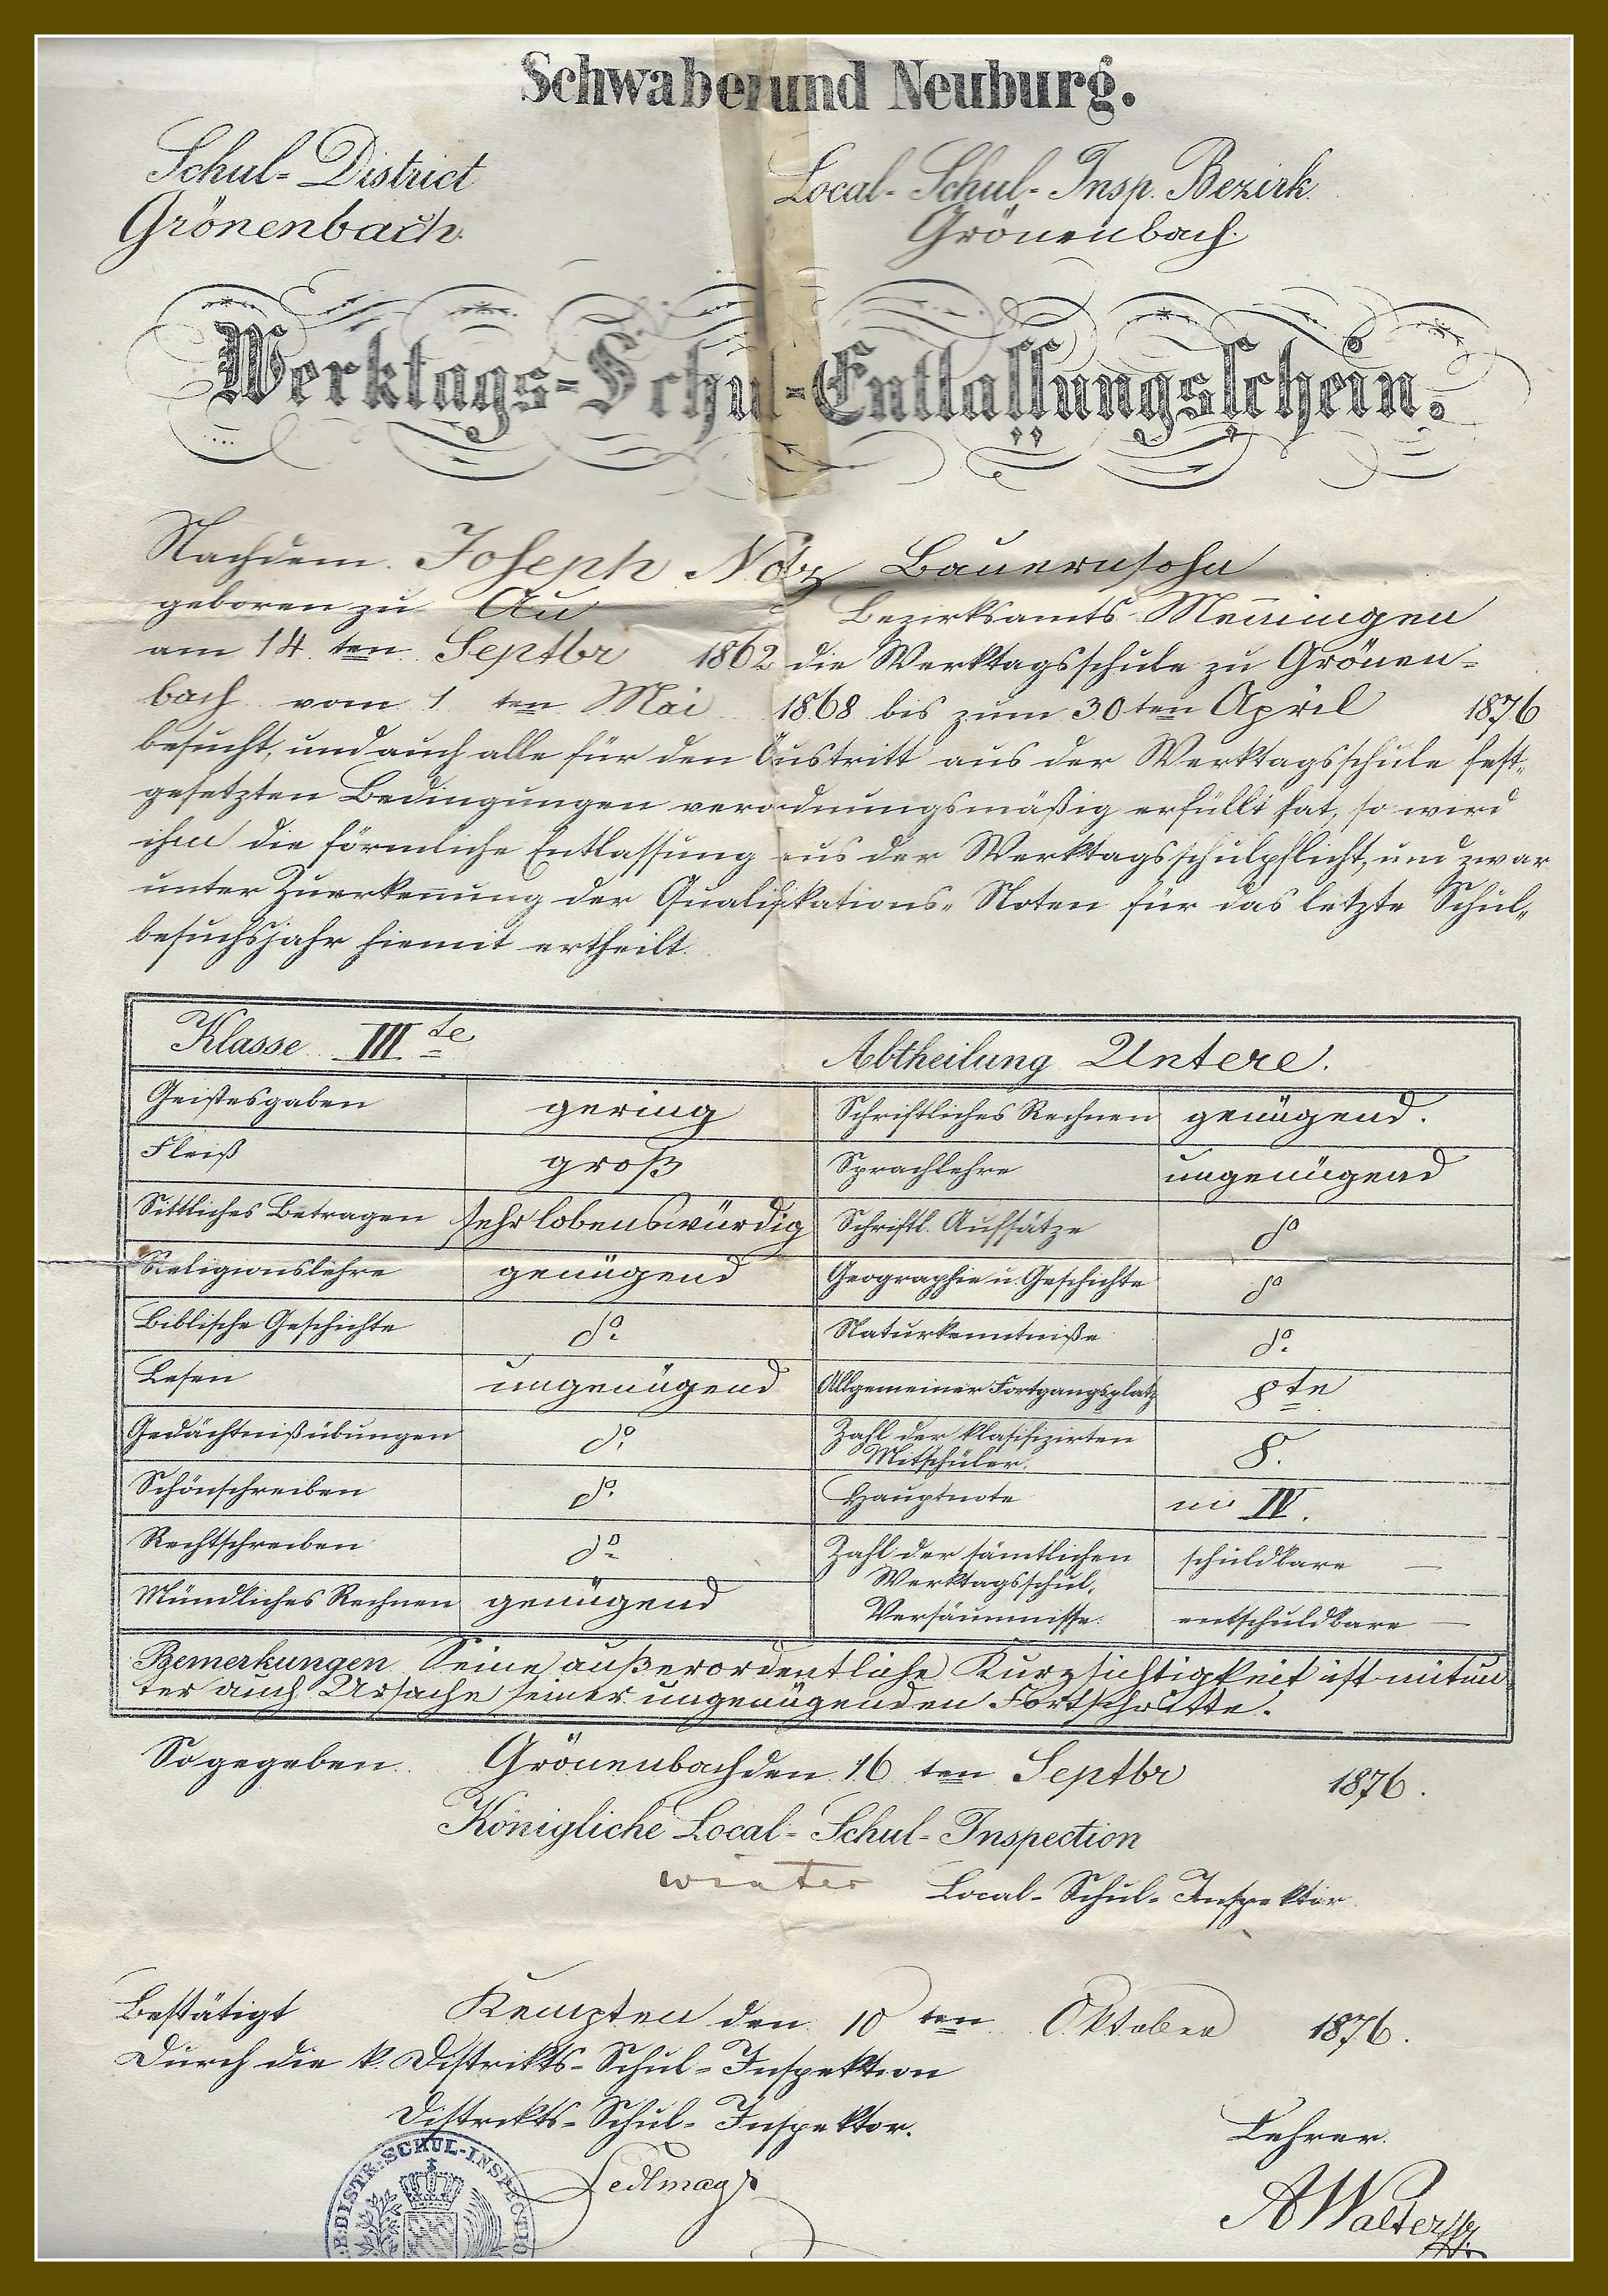 Schwaben und Neuburg.
Schul-District
Grönenbach.
Local-Schul-Insp. Bezirk
Grönenbach.
Werktags-Schul-Entlassungsschein.
Nachdem Joseph Notz Bauernsohn
geboren zu Au Bezirksamts Mem̅ingen
am 14 ten Septbr 1862 die Werktagsschule zu Grönen-
bach vom 1 ten Mai 1868 bis zum 30ten April 1876
besucht, und auch alle für den Austritt aus der Werktagsschule fest-
gesetzten Bedingungen verordnungsmäßig erfüllt hat, so wird
ihm die förmliche Entlassung aus der Werktagsschulpflicht, und zwar
unter Zuerken̅ung der Qualifikations-Noten für das letzte Schul-
besuchsjahr hiemit ertheilt.
Klasse III te Abtheilung Untere.
Geistesgaben gering
Fleiß groß
Sittliches Betragen sehr lobenswürdig
Religionslehre genügend
Biblische Geschichte do.
Lesen ungenügend
Gedächtnißübungen do.
Schönschreiben do.
Rechtschreiben do.
Mündliches Rechnen genügend
Schriftliches Rechnen genügend.
Sprachlehre ungenügend
Schriftl. Aufsätze do
Geographie u. Geschichte do
Naturkenntniße do.
Allgemeiner Fortgangsplatz 8te
Zahl der klassifizirten
Mitschüler. 8.
Hauptnote IV.
Zahl der sämtlichen
Werktagsschul-
Versäumnisse.
schuldbare —
entschuldbare —
Bemerkungen Seine außerordentliche Kurzsichtigkeit ist mitun-
ter auch Ursache seiner ungenügenden Fortschritte.
So gegeben Grönenbach den 16 ten Septbr 1876.
Königliche Local-Schul-Inspection
Winter Local-Schul-Inspektor
Bestätigt Kempten den 10 ten Oktober 1876.
Durch die k. Distrikts-Schul-Inspektion
Distrikts-Schul-Inspektor.
Sedlmayr
K. DISTR. SCHUL-INSPECTIO
Lehrer.
A Walter